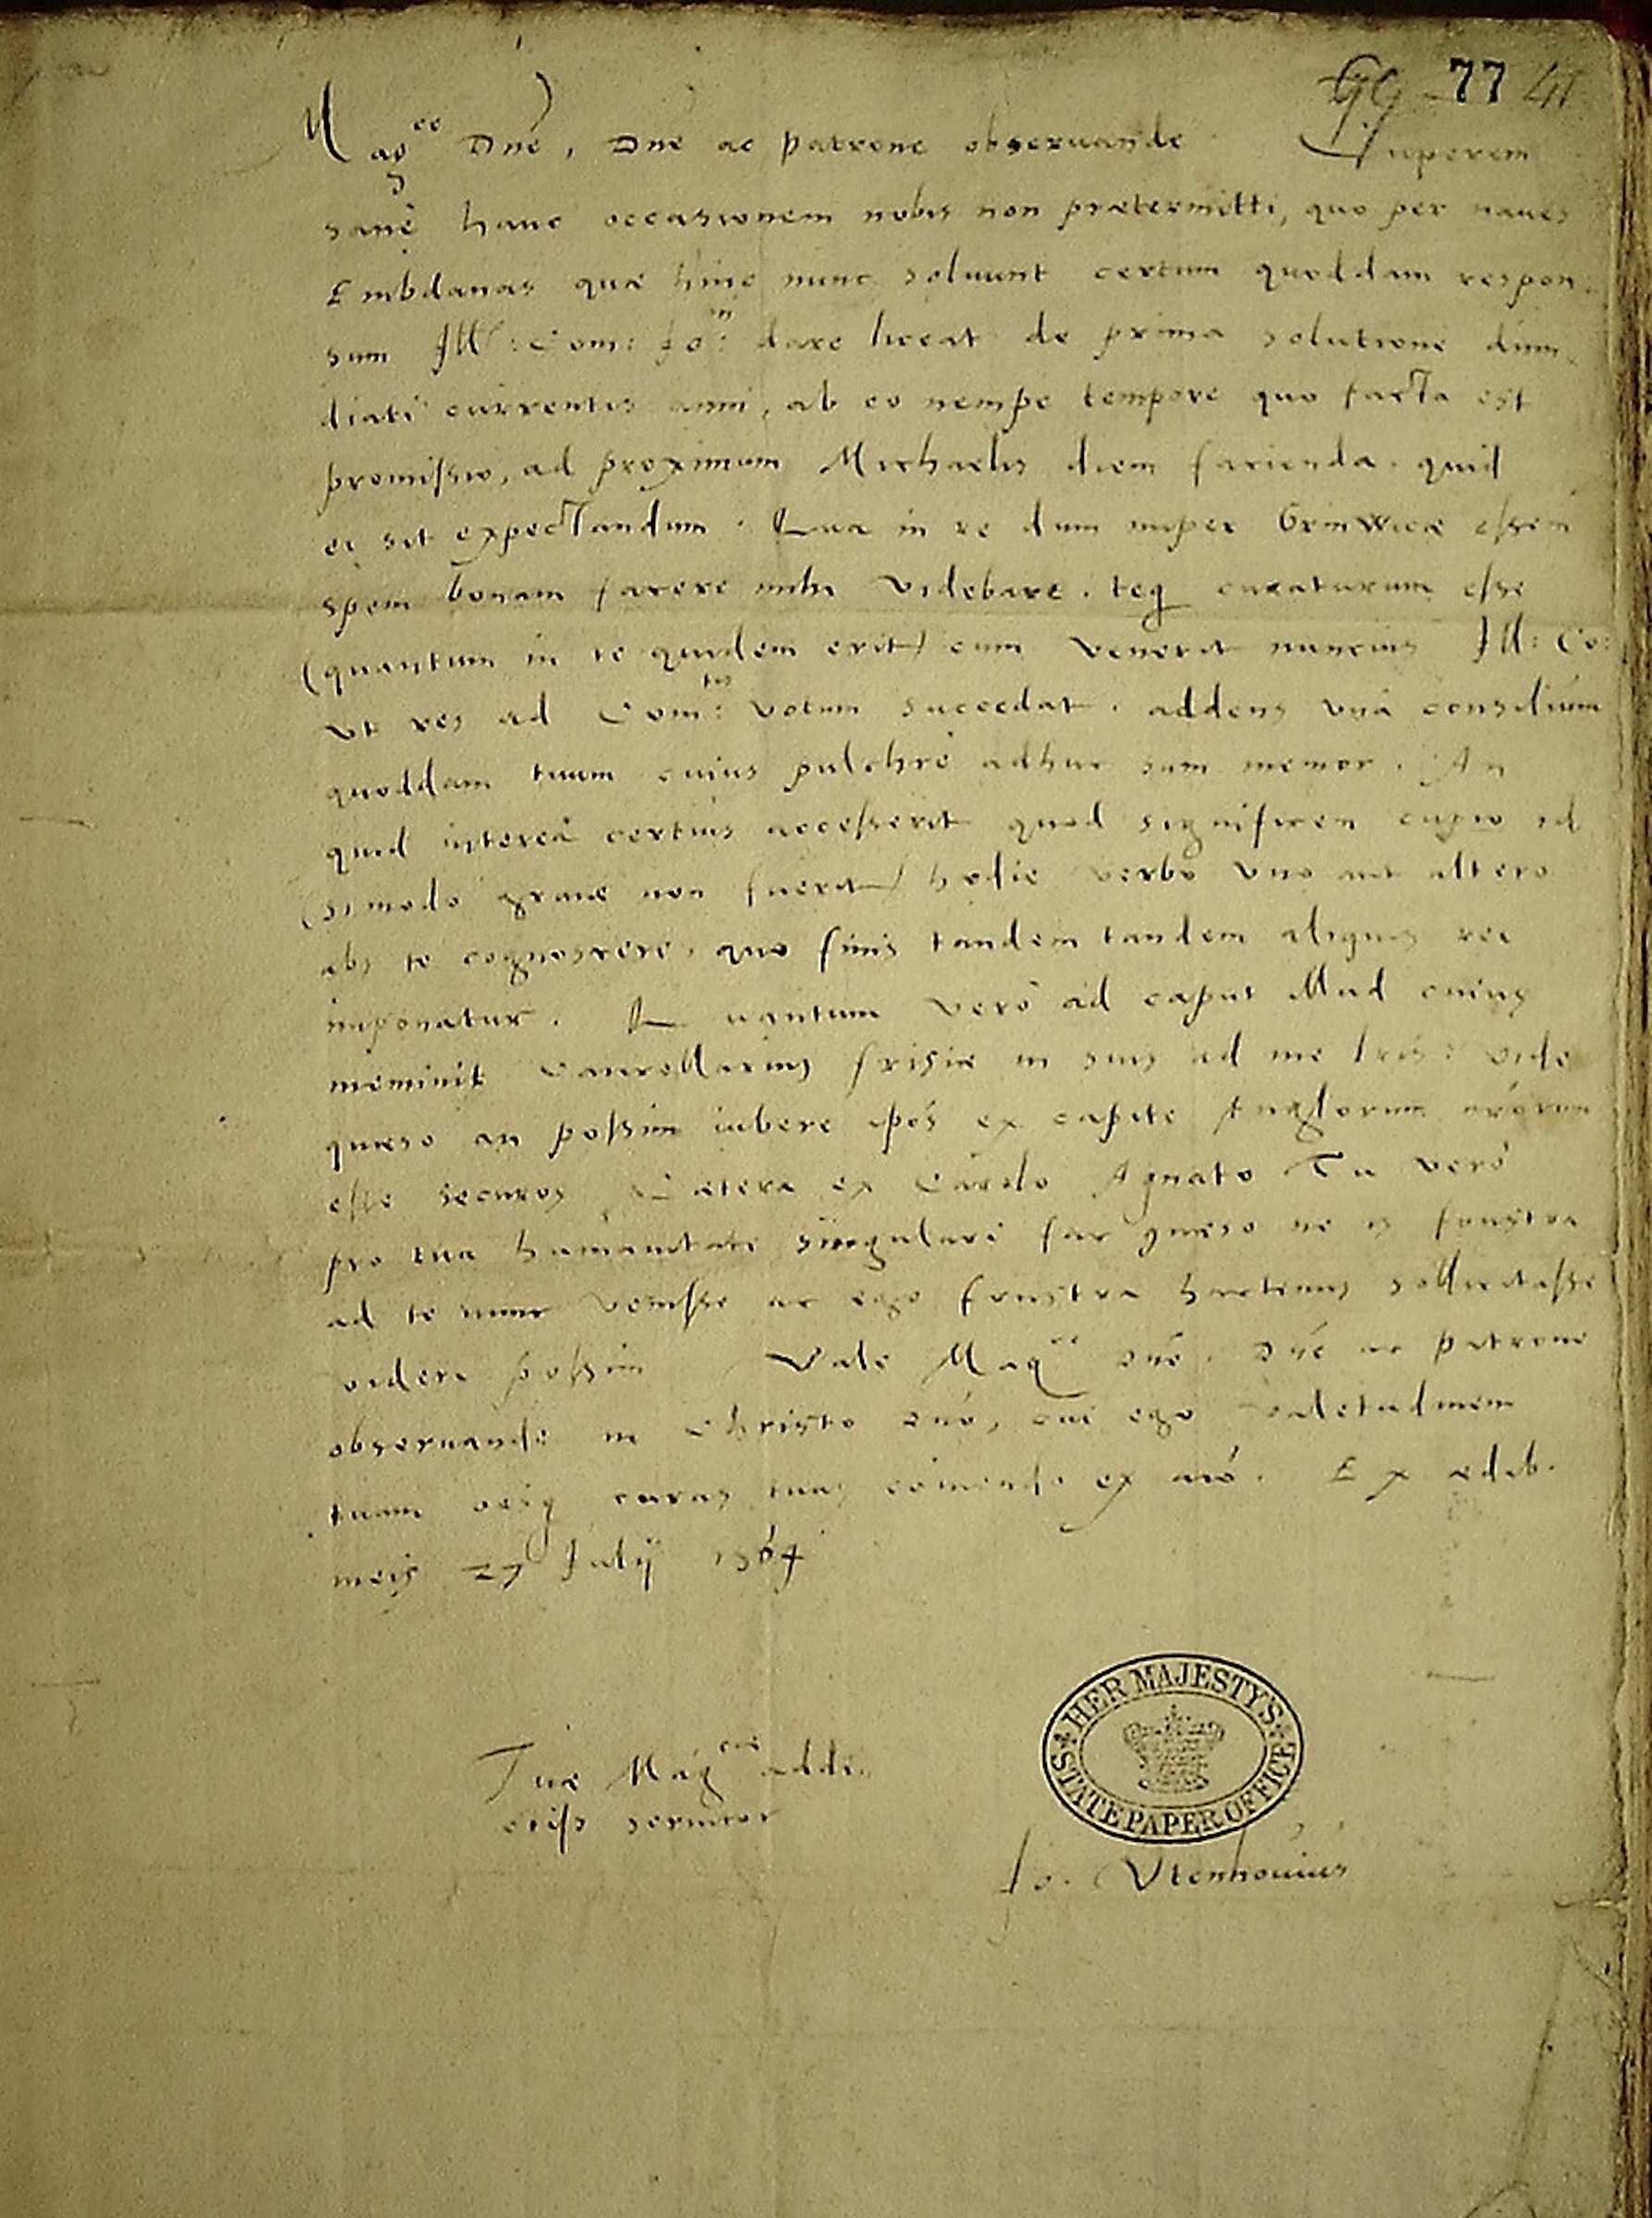 GG 77 41
Mag^ce Dne, Dne ac patrone obseruande Cuperem
sanè hanc occasionem nobis non prætermitti, quo per naues
Embdanas quæ hinc nunc soluunt certum quoddam respon
sum Ill: Com: Jo: dare liceat de prima solutione dimi
diati currentis anni, ab eo nempe tempore quo facta est
promissio, ad proximum Michaelis diem facienda. quid
ei sit expectandum. Qua in re dum nuper Grinwicæ essem
spem bonam facere mihi videbare. teq curaturum esse
(quantum in te quidem erit) cum venerit nuncius Ill: Co:
vt res ad Com:^tis votum succedat. addens vnà consilium
quoddam tuum cuius pulchrè adhuc sum memor. An
quid intereà certius accesserit quod significem cupio id
(si modo graue non fuerit) hodie verbo vno aut altero
abs te cognoscere, quo finis tandem tandem aliquis rei
imponatur. Quantum verò ad caput illud cuius
meminit Cancellarius frisiæ in suis ad me lris: vide
quæso an possim iubere ipós ex capite Anglorum
esse securos Cætera ex Carolo Agnato Tu verò
pro tua humanitate singulari fac quæso ne is frustra
ad te nunc venisse ac ego frustra hactenus sollicitasse
videri possim Vale Mag^ce Dné. Dné ac patrone
obseruande in Christo Dnó, cui ego valetudinem
tuam oesq curas tuas comendo ex aió. Ex ædib.
meis 27 Julij 1564
Tuæ Mag^ciæ addi
ctiss seruitor
HER MAJESTY'S STATE PAPER OFFICE
Jo. Vtenhouius